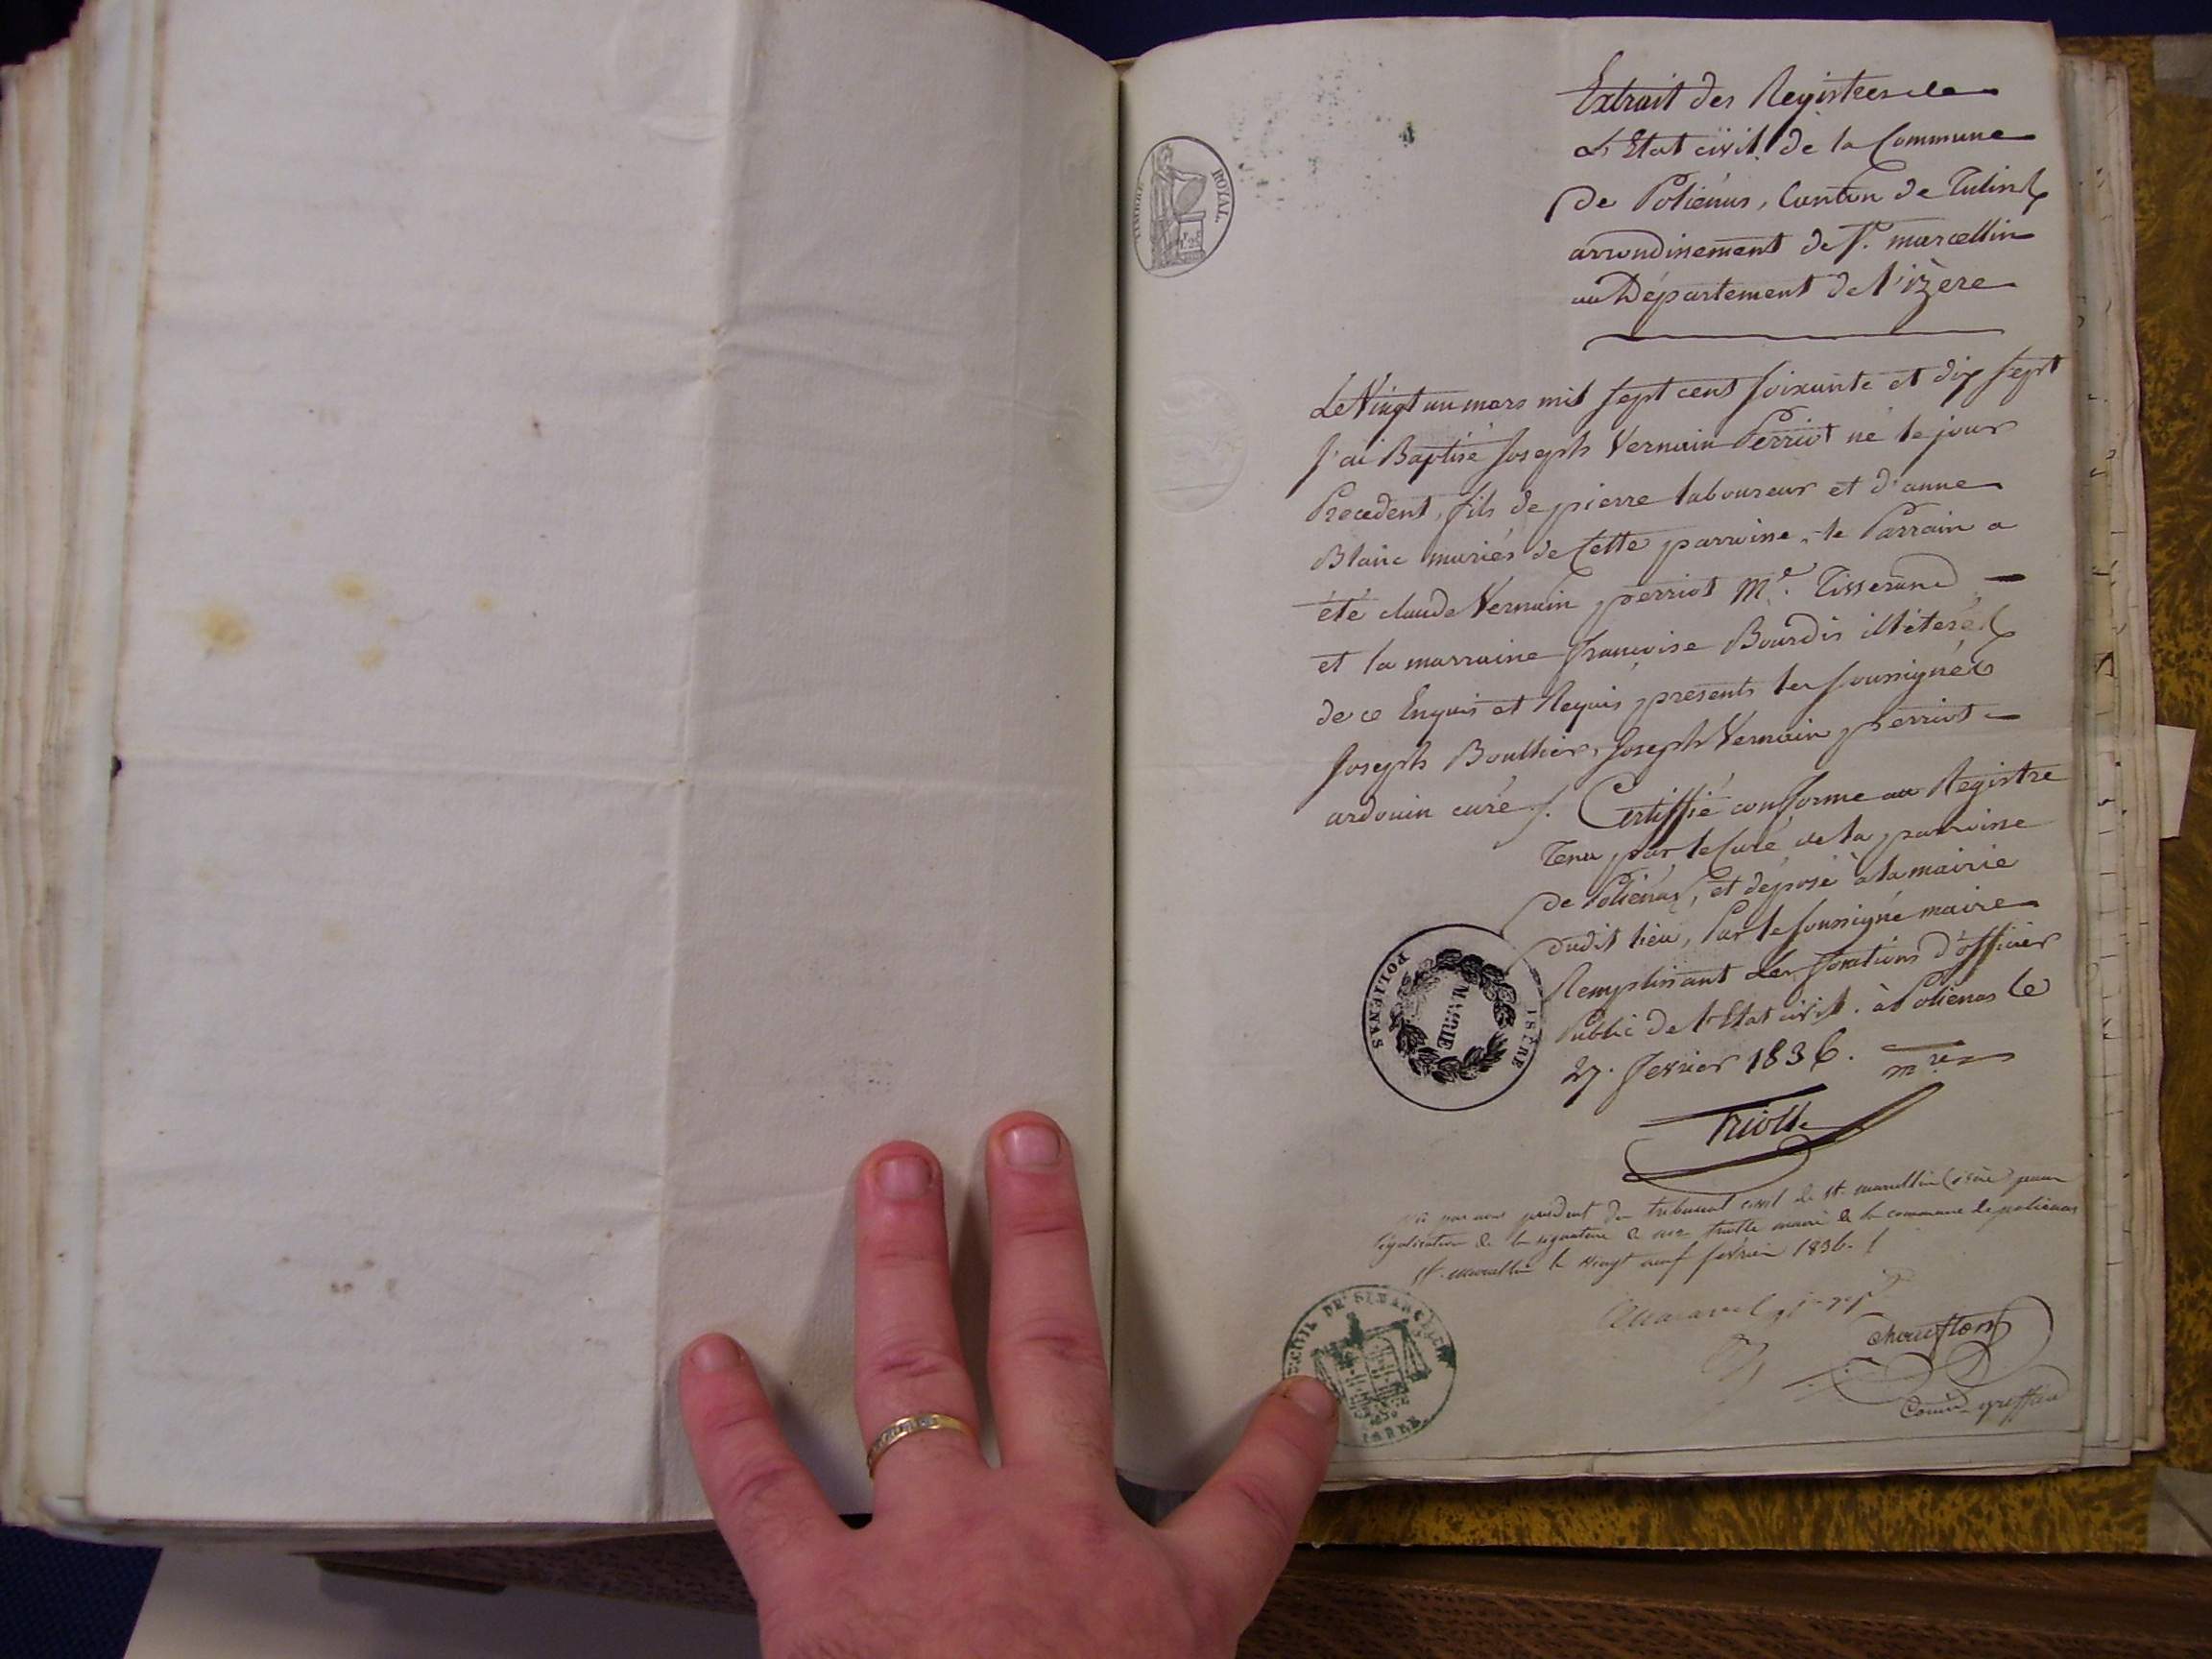 TIMBRE ROYAL
1f 25c
Extrait des Registres de
L'Etat civil de la Commune
De Poliénas, Canton de Tulins
arrondissement de St. marcellin
au Département de l'izère
Le Vingt un mars mil sept cent soixante et dix sept
J'ai Baptisé Joseph Vernain Perriot né le jour
Precedent, fils de pierre laboureur et d'anne
Blanc mariés de Cette parroise, le Parrain a
été claude Vernain perriot Md. Tisserand
et la marraine françoise Bourdis illiterés
de ce Enquis et Requis presents les soussignés
Joseph Boulhier, Joseph Vernain perriot
ardouin curé s. Certiffié conforme au Registre
Tenu par le Curé de la parroisse
De Poliénas, et déposé à la mairie
dudit lieu, Par le soussigné maire
Remplissant les fonctions d'officier
Public de l'Etat civil. à Polienas le
27. fevrier 1836. mre
Triolle
MAIRIE
POLIENAS
ISÈRE
Vu par nous président du tribunal civil de St. marcellin (isère) pour
légalisation de la signature de mr triolle maire de la commune de polienas
St. marcellin le vingt neuf février 1836.
DE St MARCELLIN
Commis greffier